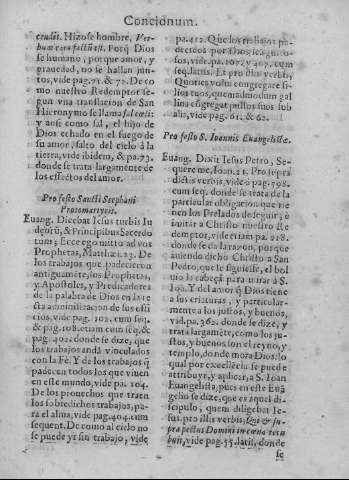 Concionum.
crudes. Hizose hombre, Ver-
bum caro factũ est. Porq̃ Dios
se humano, porque amor, y
grauedad, no se hallan jun-
tos, vide pag. 71. & 72. De co
mo nuestro Redemptor se-
gun vna translacion de San
Hieronymo se llama
y ansi como sal, el hijo de
Dios echado en el fuego de
su amor, salto del cielo à la
tierra, vide ibidem, & pa. 73.
donde se trata largamente de
los effectos del amor.
Pro festo Sancti Stephani
Protomartyris.
Euang. Dicebat Iesus turbis Iu
deorũ, & Principibus Sacerdo
tum; Ecce ego mitto ad vos
Prophetas, Matthæi. 23. De
los trabajos que padecieron
antiguamẽte, los Prophetas,
y Apostoles, y Predicadores
de la palabra de Dios en la re
cta administracion de sus offi
cios, vide pag. 102. cum seq.
& pag. 108. etiam cum seq. &
pag. 402. donde se dize, que
los trabajos andã vinculados
con la Fè. Y de los trabajos q̃
padecen todos los que viuen
en este mundo, vide pa. 104.
De los prouechos que traen
los sobredichos trabajos, pa-
ra el alma, vide pag. 404. cum
sequent. De como al cielo no
se puede yr sin trabajo, vide
pa. 412. Que los trabajos pa-
decidos por Dios, son
sos, vide. pa. 102. y 407. cum
seq. latis. Et pro illis verbis,
Quoties volui congregare fi-
lios tuos, quemadmodum gal
lina cõgregat pullos suos sub
alis, vide pag. 61. & 62.
Pro festo S. Ioannis Euangelistæ.
Euang. Dixit Iesus Petro, Se-
quere me, Ioan. 21. Pro supra
dictis verbis, vide à pag. 798.
cum seq. donde se trata de la
particular obligacion que tie
nen los Prelados de seguir, è
imitar à Christo nuestro Re
demptor, vide etiam pa. 218.
donde se da la razon, porque
auiendo dicho Christo a San
Pedro, que le siguiesse, el bol
uio la cabeça para mirar à S.
Ioã. Y del amor q̃ Dios tiene
a sus criaturas, y particular-
mente a los justos, y buenos,
vid. pa. 562. donde se dize, y
trata largamẽte, como los ju-
stos, y buenos son el reyno, y
templo, donde mora Dios, lo
qual por excelẽcia se puede
attribuyr, y aplicar a S. Ioan
Euangelista, pues en este Euã
gelio se dize, que es aquel di-
scipulo, quem diligebat Ie-
sus. pro illis verbis; Qui & su-
pra pectus Domini in cœna recu
buit, vide pag. 55. latis, donde
se